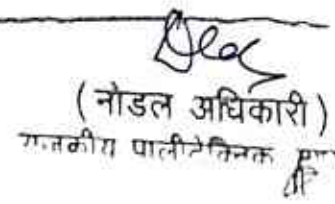 ( नोडल अधिकारी )
राजकीय पालीटेक्निक